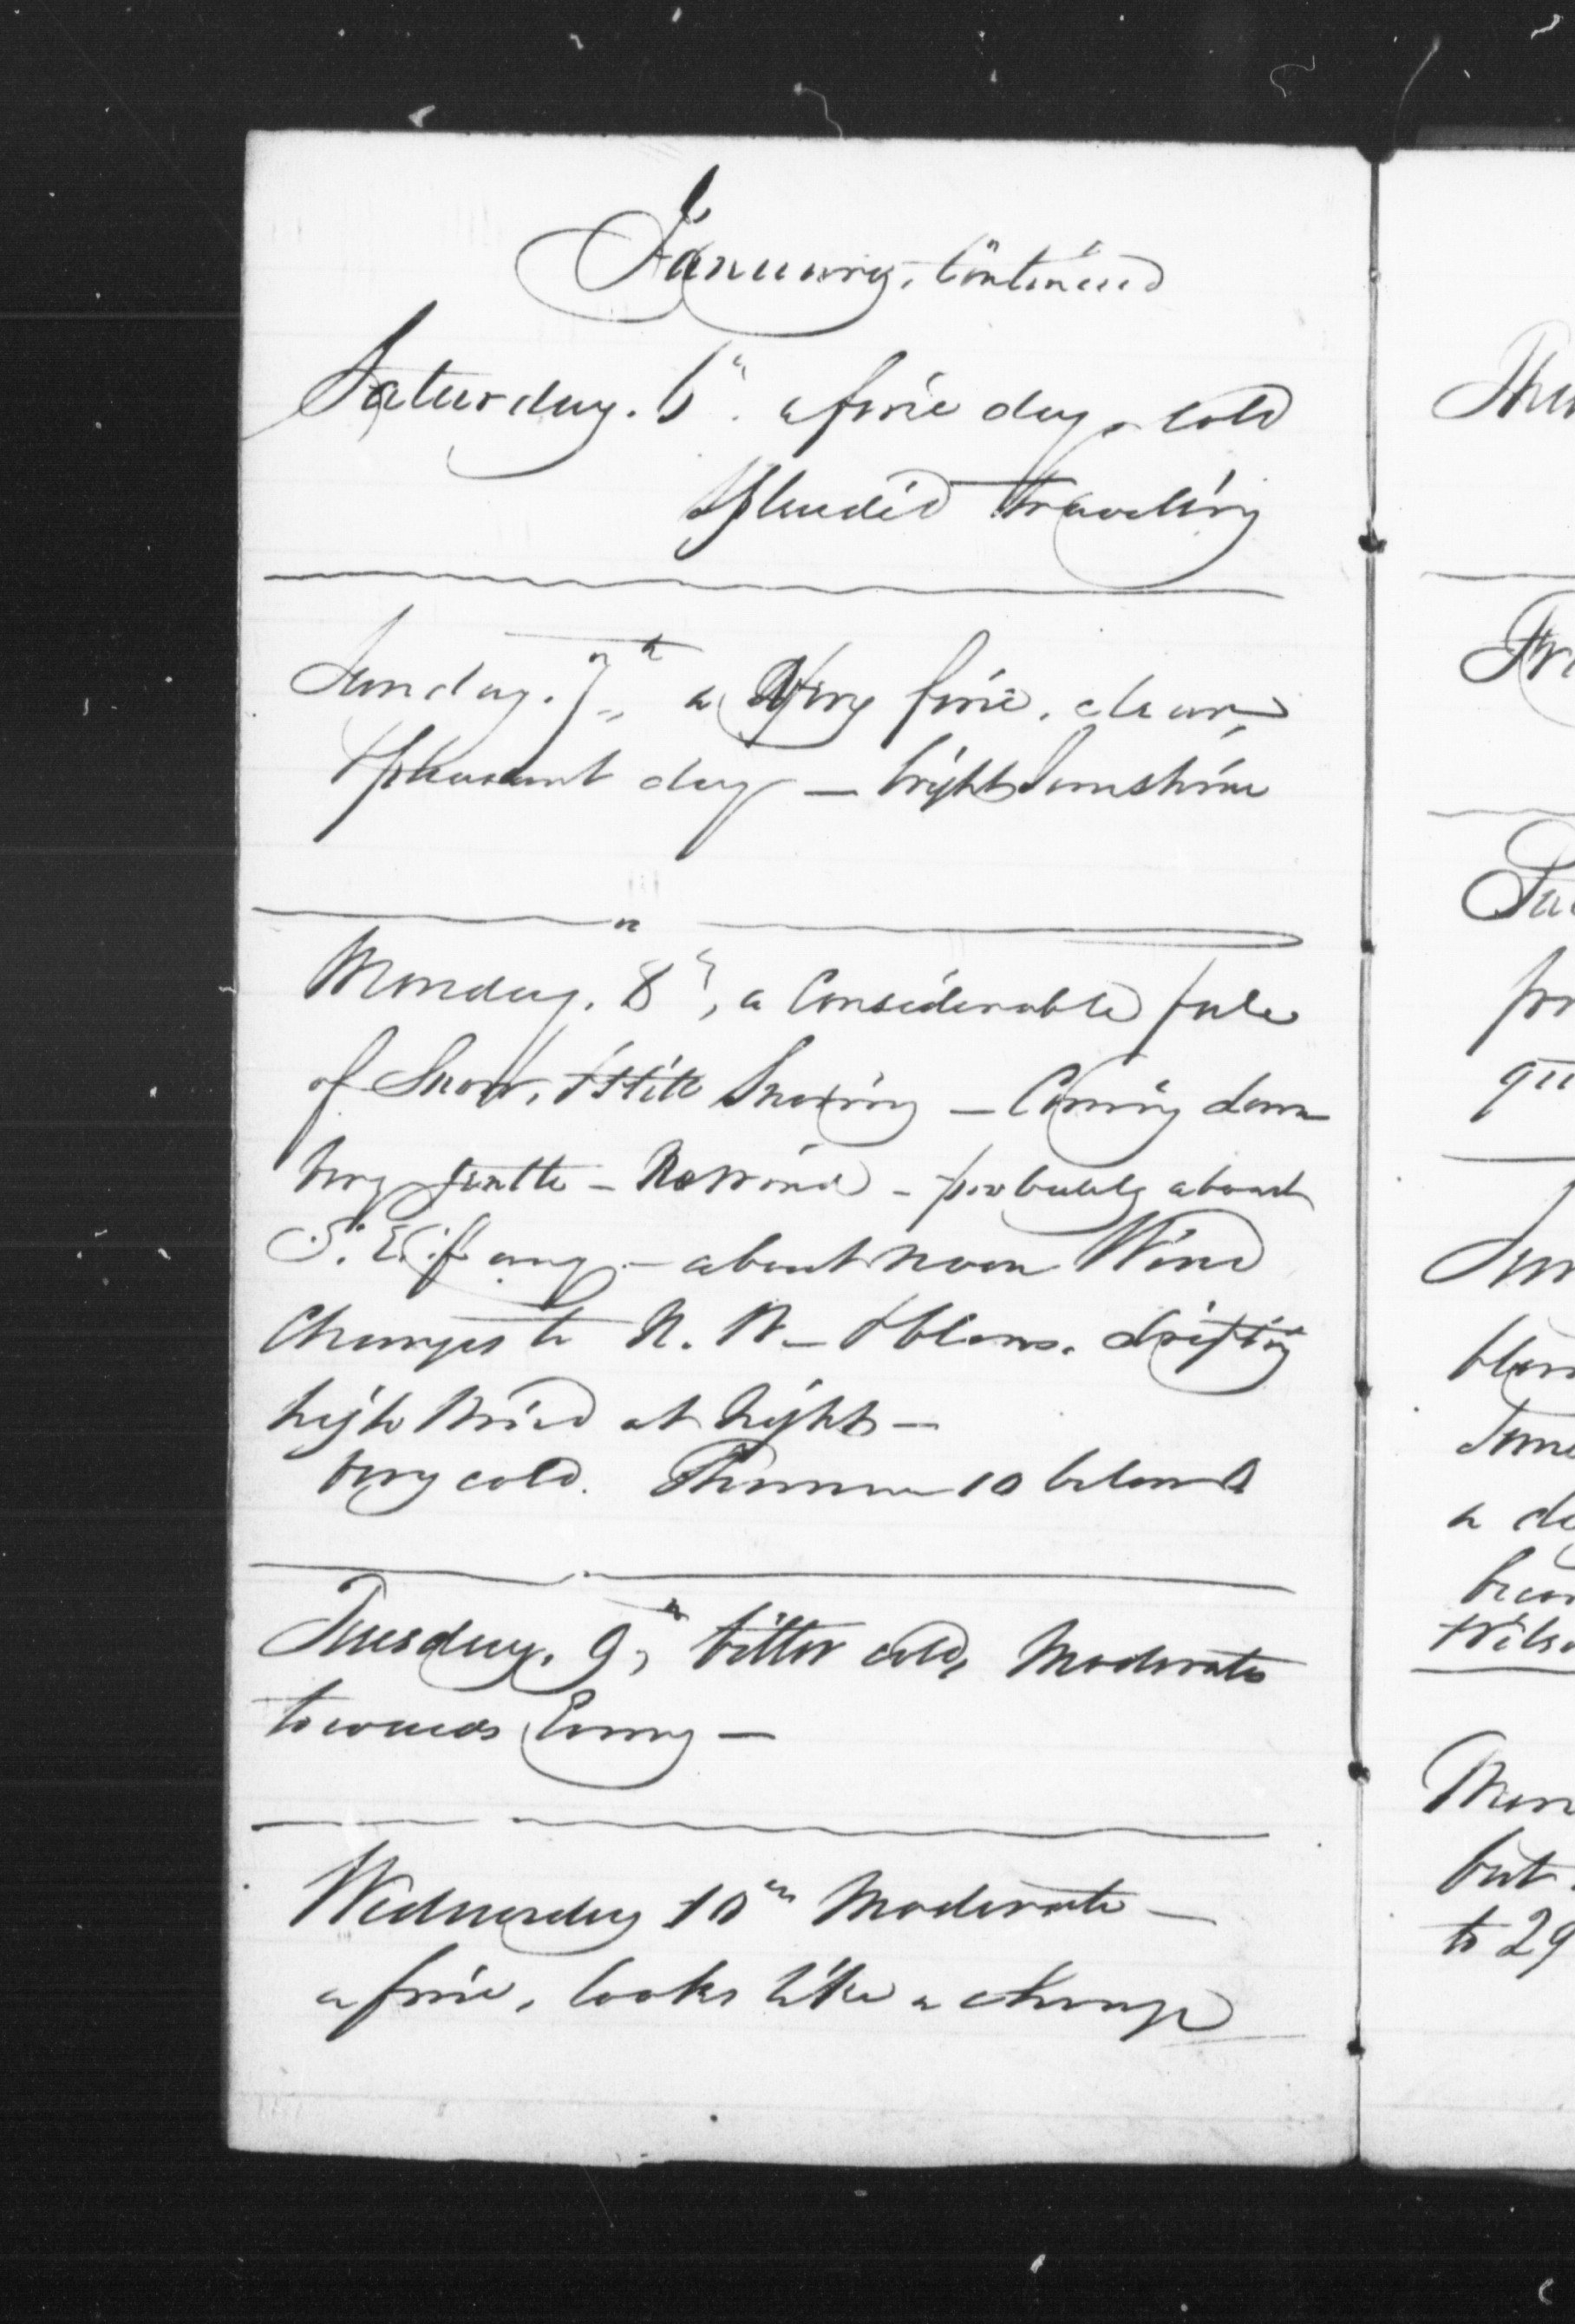 January, Continued
Saturday. 6th. a fine day, cold
Splendid traveling
Sunday. 7th a Very fine, clear,
& pleasant day — bright Sunshine
Monday. 8th, a Considerable fale
of Snow, & still Snowing — Coming down
very gentle — No Wind — probably about
S. E. if any — about noon Wind
Changes to N. W — & blows. drifting
high Wind at Night —
very cold. Thermom 10 below 0
Tuesday. 9th, bitter cold, Moderate
towards Evning —
Wednesday 10th Moderate —
a fine, looks like a change
Thu
Fri
Sat
fin
Sun
blow
a
Mon
but
to 29